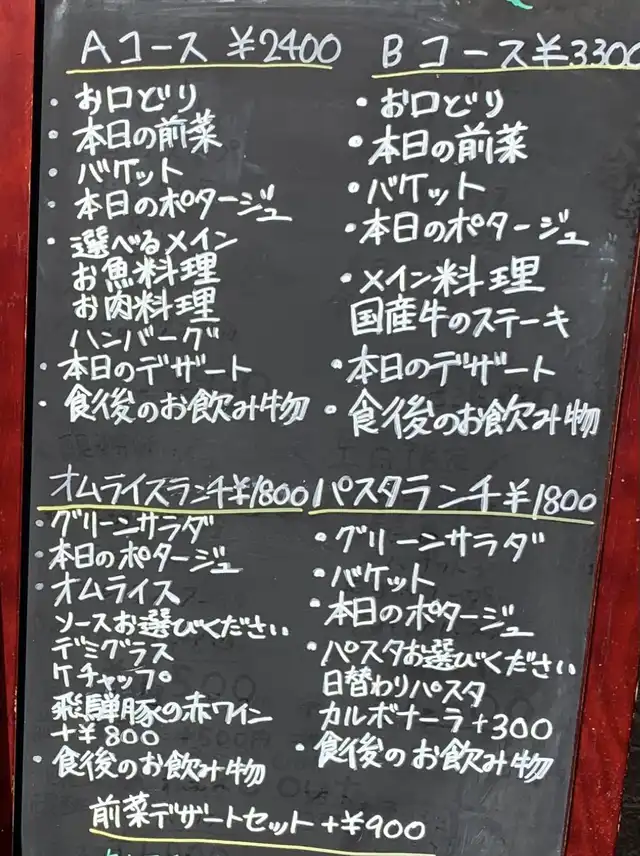 Aコース ¥2400
・お口どり
・本日の前菜
・バケット
・本日のポタージュ
・選べるメイン
お魚料理
お肉料理
ハンバーグ
・本日のデザート
・食後のお飲み物
Bコース¥3300
・お口どり
・本日の前菜
・バケット
・本日のポタージュ
・メイン料理
国産牛のステーキ
・本日のデザート
・食後のお飲み物
オムライスランチ¥1800
・グリーンサラダ
・本日のポタージュ
・オムライス
ソースお選びください
デミグラス
ケチャップ
飛騨豚の赤ワイン
+¥800
・食後のお飲み物
パスタランチ¥1800
・グリーンサラダ
・バケット
・本日のポタージュ
・パスタお選びください
日替わりパスタ
カルボナーラ+300
・食後のお飲み物
前菜デザートセット+¥900